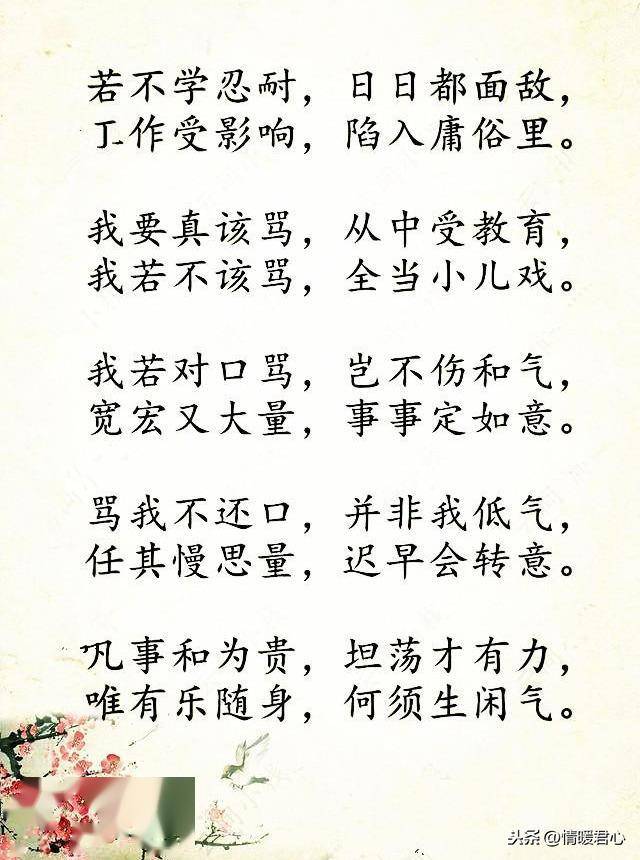 若不学忍耐，日日都面敌，
工作受影响，陷入庸俗里。
我要真该骂，从中受教育，
我若不该骂，全当小儿戏。
我若对口骂，岂不伤和气，
宽宏又大量，事事定如意。
骂我不还口，并非我低气，
任其慢思量，迟早会转意。
凡事和为贵，坦荡才有力，
唯有乐随身，何须生闲气。
头条@情暖君心